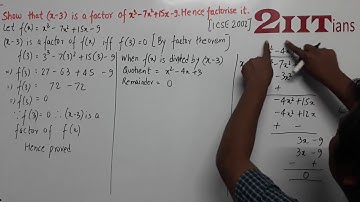 Show that (x-3) is a factor of x³-7x²+15x-9. Hence factorise it.
[ICSE 2002]
2IITians
Let f(x) = x³-7x²+15x-9
(x-3) is a factor of f(x) iff f(3)=0 [By factor theorem]
f(3) = 3³-7(3)²+15(3)-9
⇒f(3) = 27-63+45-9
⇒f(3) = 72-72
∵f(3)=0 ∴(x-3) is a
factor of f(x)
Hence proved
When f(x) is divided by (x-3)
Quotient = x²-4x+3
Remainder = 0
-7x²
-3x²
+
-4x²+15x
-4x²+12x
+ -
3x-9
3x-9
- +
0